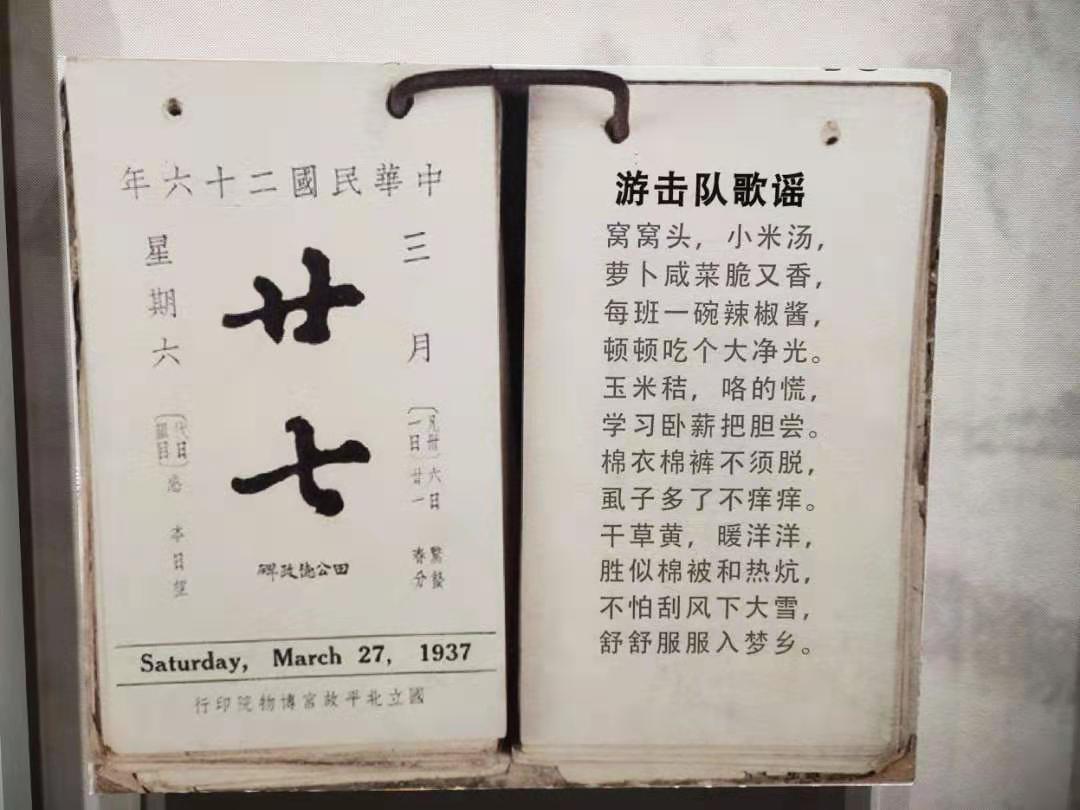 中華民國二十六年
三月
廿七
星期六
凡卅一日
六日
廿一
驚蟄
春分
本日望
田公德政碑
Saturday, March 27, 1937
國立北平故宮博物院印行
游击队歌谣
窝窝头，小米汤，
萝卜咸菜脆又香，
每班一碗辣椒酱，
顿顿吃个大净光。
玉米秸，咯的慌，
学习卧薪把胆尝。
棉衣棉裤不须脱，
虱子多了不痒痒。
干草黄，暖洋洋，
胜似棉被和热炕，
不怕刮风下大雪，
舒舒服服入梦乡。